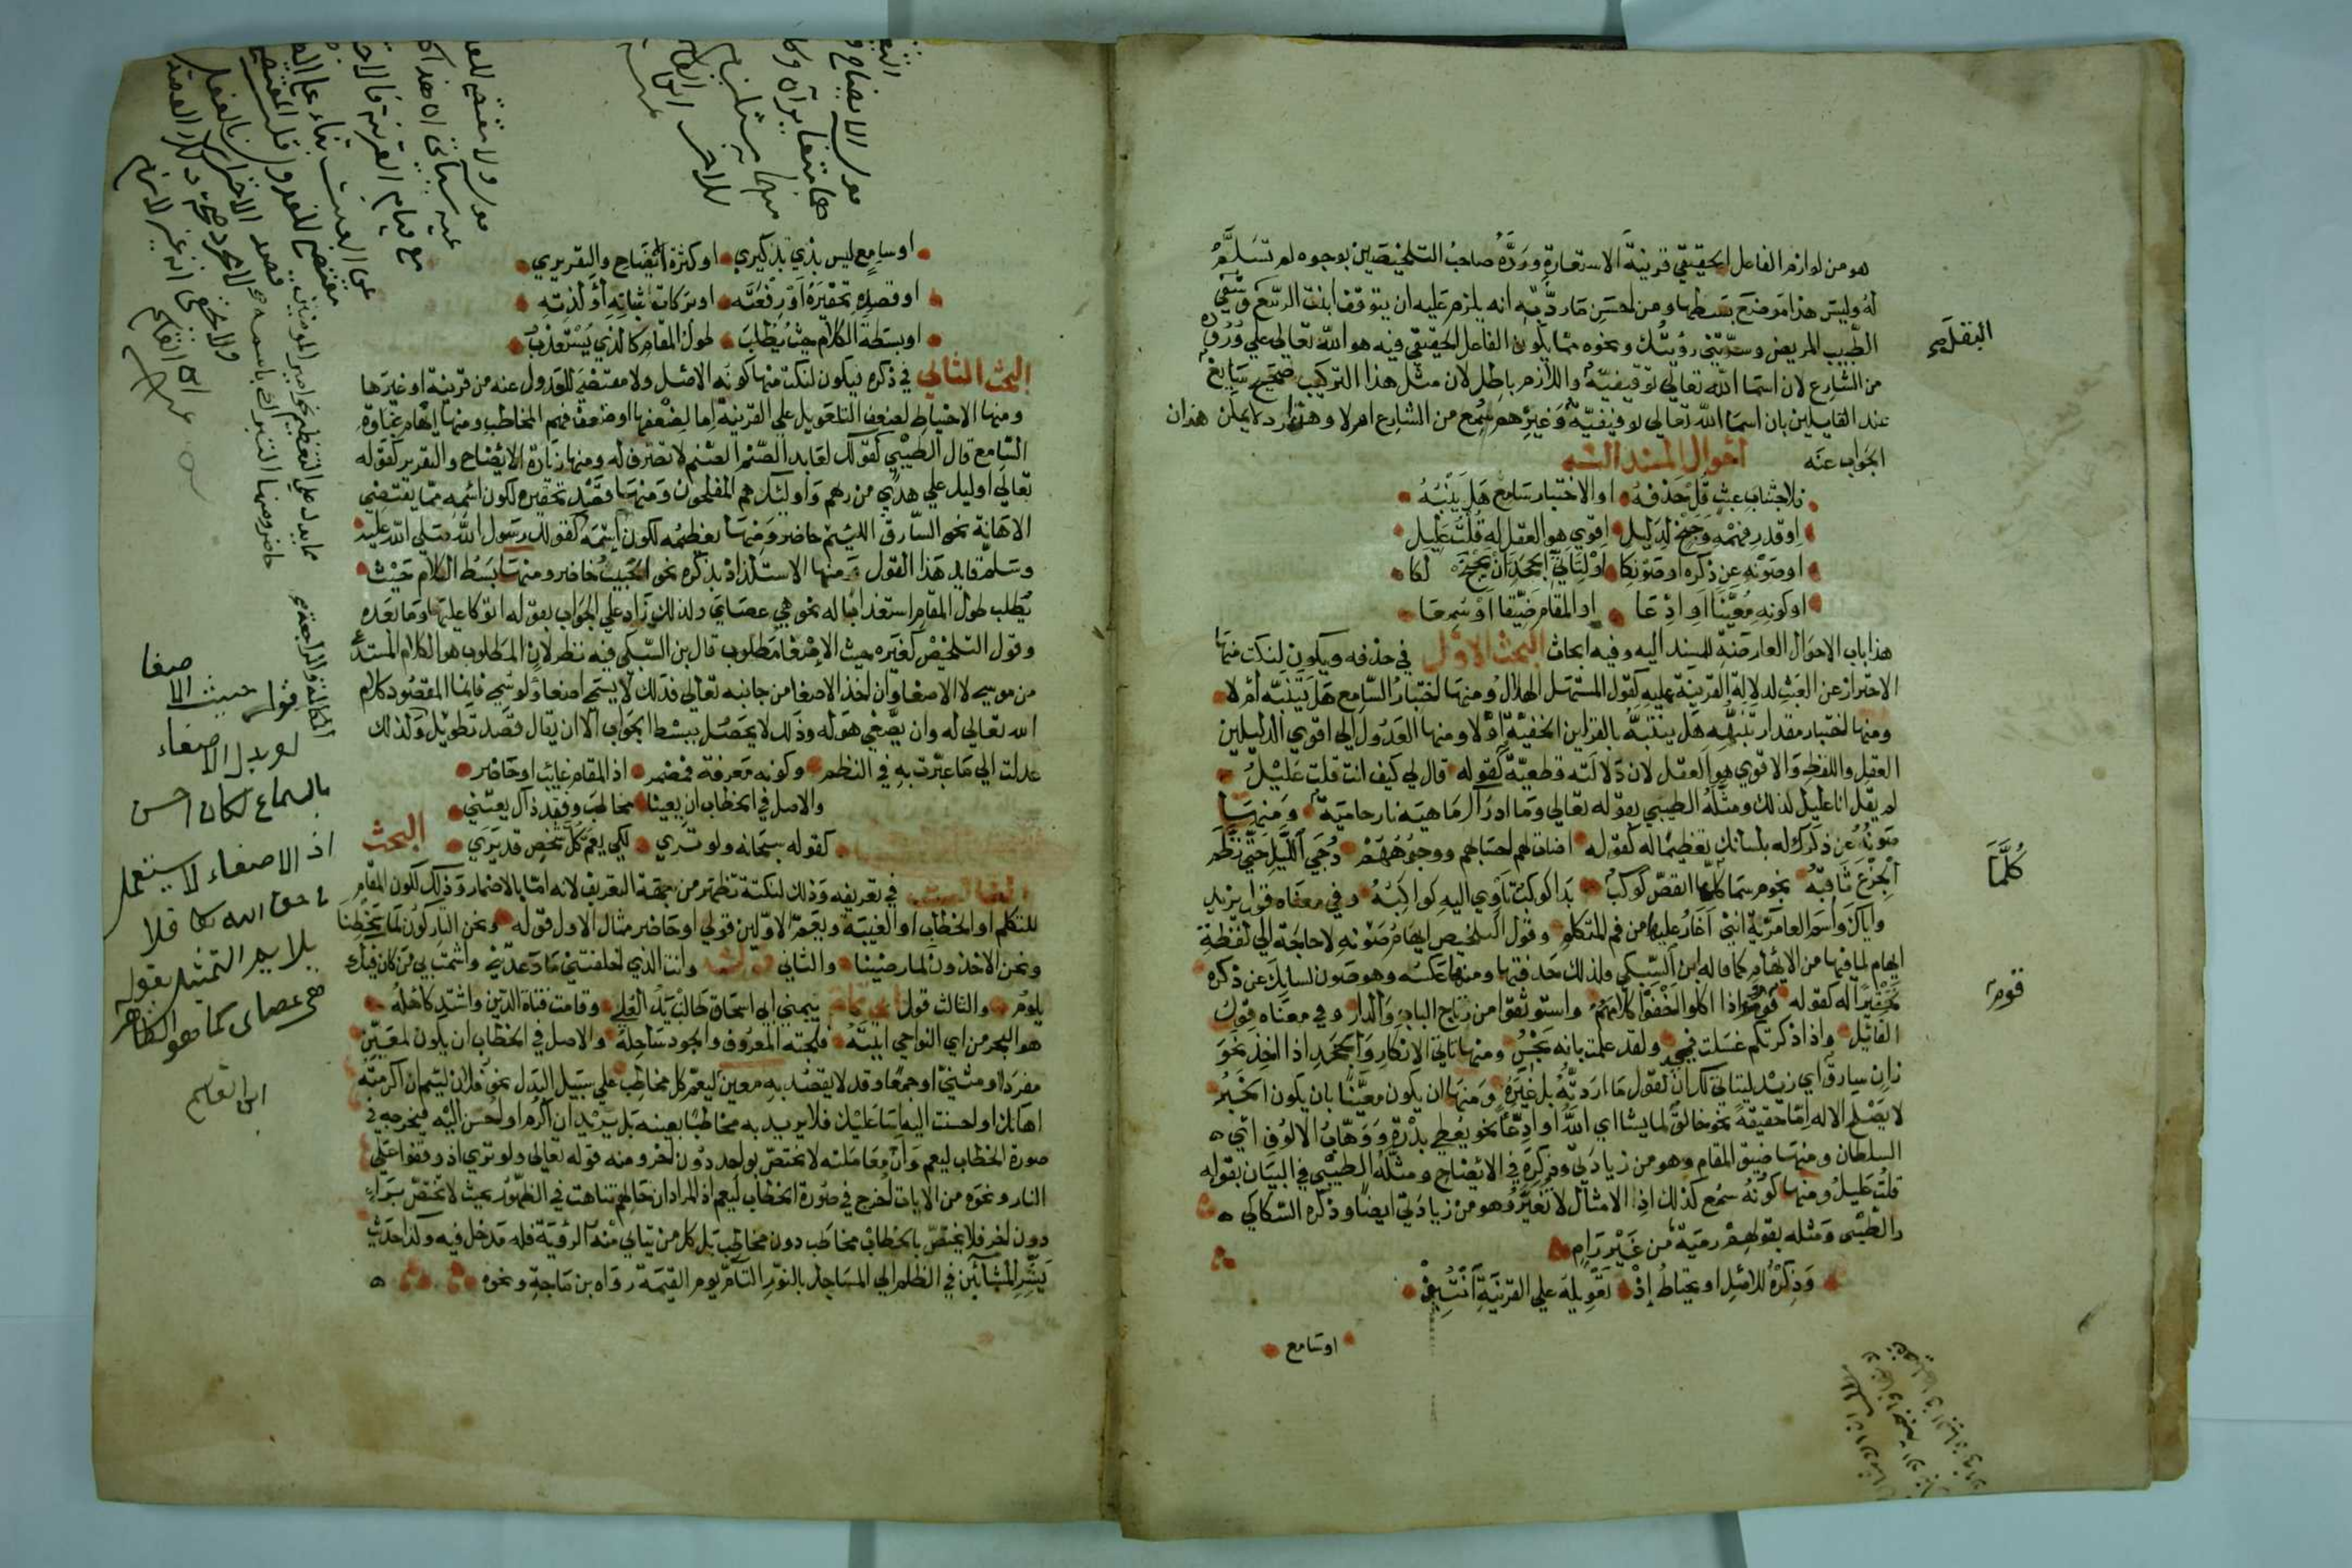 هو من لوازم الفاعل الحقيقي قرينة الاستعارة ورده صاحب التلخيص بوجوه لم تسلم
له وليس هذا موضع بسطها ومن احسن ما رد به انه يلزم عليه ان يتوقف انبت الربيع وشفي
الطبيب المريض وسرتني رؤيتك ونحوه مما يكون الفاعل الحقيقي فيه هو الله تعالي علي وروده
من الشارع لان اسما الله تعالي توقيفية واللازم باطل لان مثل هذا التركيب صحيح شايع
عند القايلين بان اسما الله تعالي توقيفية وغيرهم سمع من الشارع ام لا وهذا رد لا يمكن
الجواب عنه احوال المسند اليه
فلاجتناب عبث قل حذفه او الاختبار سامع هل ينبه
او قدر فهمه وجنح لدليل اقوي هو العقل له قلت عليل
او صونه عن ذكره او صونكا او لتأتي الجحد ان يجنح لكا
او كونه معينا او ادعا او المقام ضيقا او سمعا
هذا باب الاحوال العارضة للمسند اليه وفيه ابحاث البحث الاول في حذفه ويكون لنكت منها
الاحتراز عن العبث لدلالة القرينة عليه كقول المستهل الهلال ومنها اختبار السامع هل يتنبه ام لا
ومنها اختبار مقدار تنبهه هل يتنبه بالقراين الخفية او لا ومنها العدول الي اقوي الدليلين
العقل واللفظ والاقوي هو العقل لان دلالته قطعية كقوله قال لي كيف انت قلت عليل
لم يقل انا عليل لذلك ومثله الطيبي بقوله تعالي وما ادراك ما هيه نار حامية ومنها
صونه عن ذكرك له بلسانك تعظيما له كقوله اضات لهم احسابهم ووجوههم دجي الليل حتي نظم
الجزع ثاقبه نجوم سما كلما انقض كوكب بدا كوكب تاوي اليه كواكبه وفي معناه قول يزيد
واياك واسم العامرية انني اغار عليها من فم المتكلم وقول التلخيص ايهام صونه لا حاجة الي لفظة
ايهام لما فيها من الايهام كما قاله ابن السبكي ولذلك حذفتها ومنها عكسه وهو صون لسانك عن ذكره
تحقيرا له كقوله قوم اذا اكلوا اخفوا كلامهم واستوثقوا من رتاج الباب والدار وفي معناه قول
القائل واذا ذكرتكم غسلت فمي ولقد علمت بانه نجس ومنها تاتي الانكار والجحد اذا اخذ نحو
زان سارق اي زيد ليتاتي لك ان تقول ما اردته بل غيره ومنها ان يكون معينا بان يكون الخبر
لا يصلح الا له اما حقيقة نحو خالق لما يشا اي الله او ادعاً نحو يعطي بدرة ووهاب الالوف اي
السلطان ومنها ضيق المقام وهو من زيادتي وذكره في الايضاح ومثله الطيبي في البيان بقوله
قلت عليل ومنها كونه سمع كذلك اذ الامثال لا تغير وهو من زيادتي ايضا وذكره السكاكي
والطيبي ومثله بقولهم رمية من غير رام
وذكره للاصل او يحتاط اذ تعويله علي القرينة انتبذ
او سامع
كلما
قوم
او سامع ليس بذي تذكير او كثرة الايضاح والتقرير
او قصده تحقيره او رفعته او بركات شانه او لذته
او بسطة الكلام حيث يطلب طول المقام كالذي يستعذب
البحث الثاني في ذكره فيكون لنكت منها كونه الاصل ولا مقتضي للعدول عنه من قرينة او غيرها
ومنها الاحتياط لضعف التعويل علي القرينة اما لضعفها او ضعف فهم المخاطب ومنها ايهام غباوة
السامع قال الطيبي كقولك لعابد الصنم الصنم لا تضرف له ومنها زيادة الايضاح والتقرير كقوله
تعالي اوليك علي هدي من ربهم واوليك هم المفلحون ومنها قصد تحقيره لكون اسمه مما يقتضي
الاهانة نحو السارق اللئيم حاضر ومنها تعظيمه لكون اسمه كقولك رسول الله صلي الله عليه
وسلم قايل هذا القول ومنها الاستلذاذ بذكره نحو الحبيب حاضر ومنها بسط الكلام حيث
يطلب طول المقام استعذابا له نحو هي عصاي ولذلك زاد علي الجواب بقوله اتوكا عليها وما بعده
وقول التلخيص كغيره حيث الاصغا مطلوب قال بن السبكي فيه نظر لان المطلوب هو الكلام المستدعي
من موسي لا الاصغا وان اخذ الاصغا من جانبه تعالي فذلك لا يسمي اصغا ولو سمي فانما المقصود كلام
الله تعالي له وان يصغي هو له وذلك لا يحصل ببسط الجواب الا ان يقال قصد تطويل ولذلك
عدلت الي ما عبرت به في النظم وكونه معرفة فمضمر اذ المقام غايب او حاضر
والاصل في الخطاب ان يعينا مخاطب وفقد ذاك يعتني
كقوله سبحانه ولو تري لكي يعم كل شخص قد يري البحث
الثالث في تعريفه وذلك لنكتة تظهر من جهة التعريف لانه اما بالاضمار وذلك لكون المقام
للتكلم او الخطاب او الغيبة ويعم الاولين قولي او حاضر مثال الاول قوله ونحن التاركون لما سخطنا
ونحن الاخذون لما رضينا والثاني وانت الذي اخلفتني ما وعدتني واشمت بي من كان فيك
يلوم والثالث قول ابي تمام بيمني ابي اسحاق طالت يد العلي وقامت قناة الدين واشتد كاهله
هو البحر من اي النواحي اتيته فلجته المعروف والجود ساحله والاصل في الخطاب ان يكون لمعين
مفردا او مثني او جمعا وقد لا يقصد به معين ليعم كل مخاطب علي سبيل البدل نحو فلان لئيم ان اكرمته
اهانك او احسنت اليه اسا عليك فلا يريد به مخاطبا بعينه بل يريد ان اكرم او احسن اليه فيخرجه في
صورة الخطاب ليعم وان معاملته لا تختص بواحد دون اخر ومنه قوله تعالي ولو تري اذ وقفوا علي
النار ونحوه من الايات اخرج في صورة الخطاب ليعم اذ المراد ان حالهم تناهت في الظهور بحيث لا تختص براء
دون اخر فلا يختص بالخطاب مخاطب دون مخاطب بل كل من يتاتي منه الرؤية فله مدخل فيه وكذا حديث
بشر المشائين في الظلم الي المساجد بالنور التام يوم القيمة رواه بن ماجة ونحوه
قوله حيث الا
صغا
لو بدل الاصغاء
بالسماع لكان احسن
اذ الاصغاء لا يستعمل
في حق الله تعا فلا
يلايم التمثيل بقوله
هي عصاى كما هو الظاهر
ابن القاسم